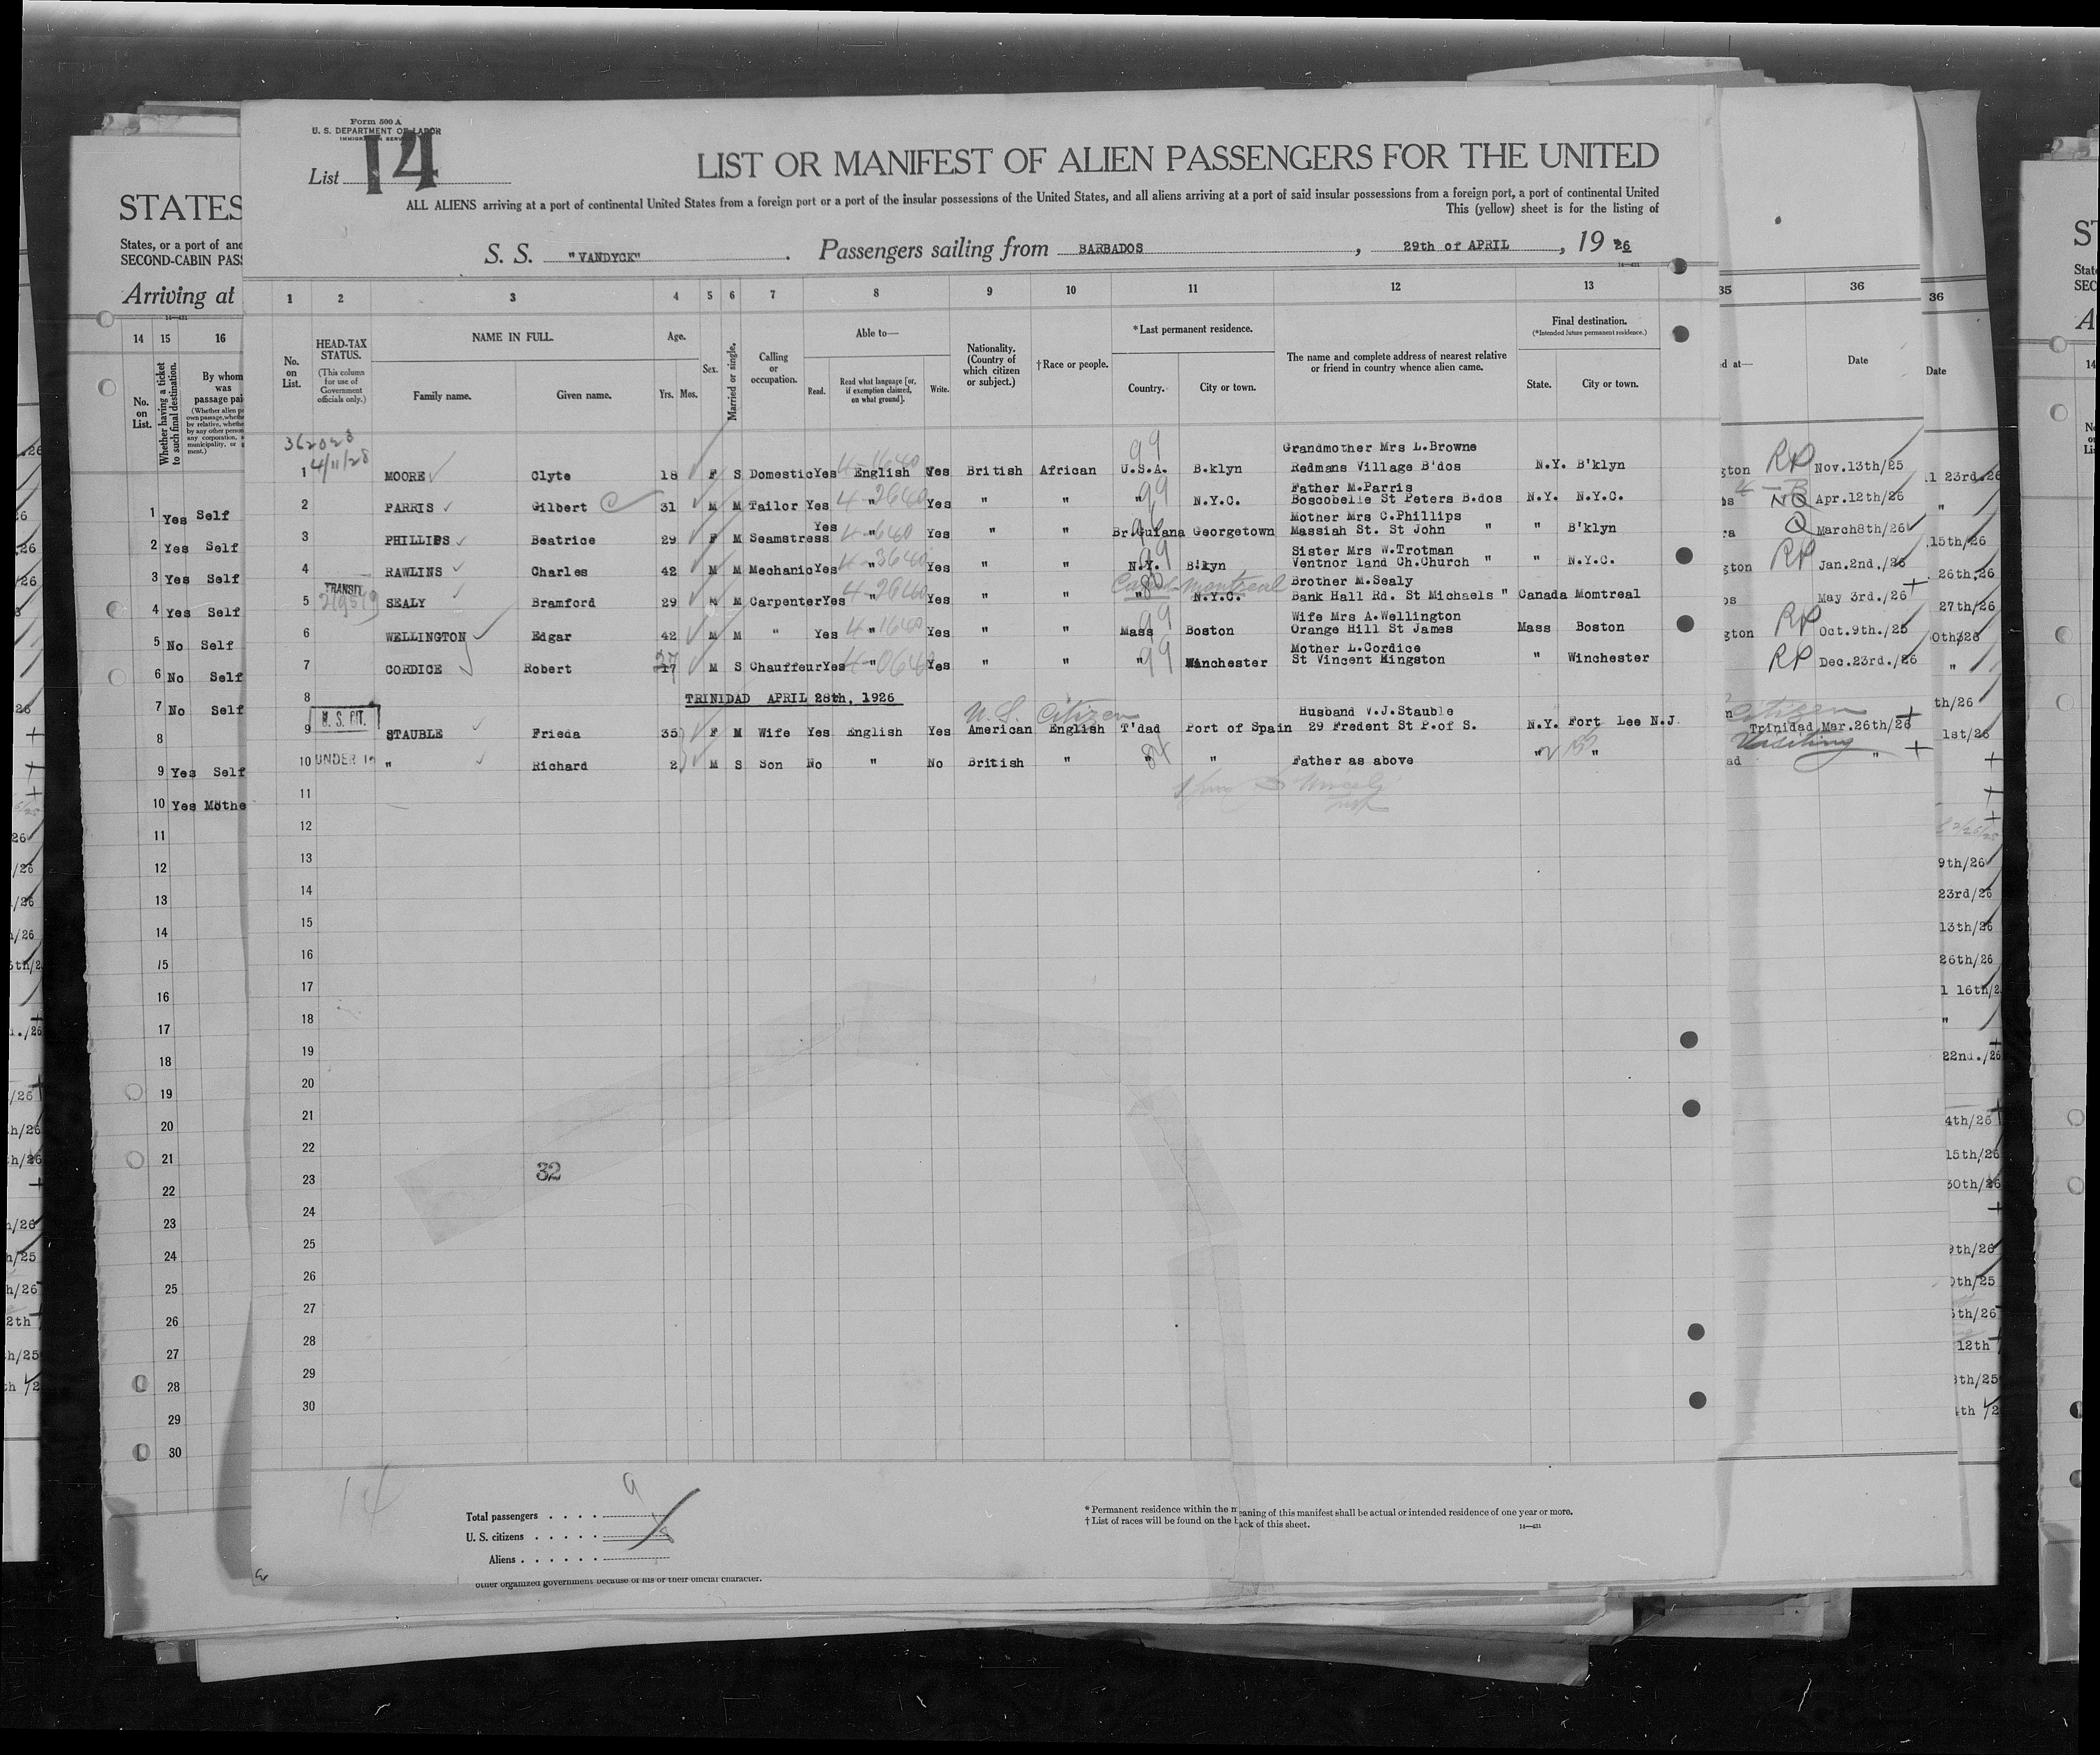 Form 500 A
U. S. DEPARTMENT OF LABOR
List 14
LIST OR MANIFEST OF ALIEN PASSENGERS FOR THE UNITED
ALL ALIENS arriving at a port of continental United States from a foreign port or a port of the insular possessions of the United States, and all aliens arriving at a port of said insular possessions from a foreign port, a port of continental United
This (yellow) sheet is for the listing of
S. S. "VANDYCK". Passengers sailing from BARBADOS, 29th of APRIL, 1926
1 2 3 4 5 6 7 8 9 10 11 12 13
No. on List.
HEAD-TAX STATUS.
(This column for use of Government officials only.)
NAME IN FULL.
Family name. Given name.
Age.
Yrs. Mos.
Sex.
Married or single.
Calling or occupation.
Able to—
Read. Read what language [or, if exemption claimed, on what ground]. Write.
Nationality. (Country of which citizen or subject.)
†Race or people.
*Last permanent residence.
Country. City or town.
The name and complete address of nearest relative or friend in country whence alien came.
Final destination.
(*Intended future permanent residence.)
State. City or town.
362028
4/11/28
99
Grandmother Mrs L.Browne
1 MOORE Clyte 18 F S Domestic Yes English Yes British African U.S.A. B.klyn Redmans Village B'dos N.Y. B'klyn
Father M.Parris
2 PARRIS Gilbert 31 M M Tailor Yes " Yes " " " N.Y.C. Boscobelle St Peters B.dos N.Y. N.Y.C.
Mother Mrs C.Phillips
3 PHILLIPS Beatrice 29 F M Seamstress Yes " Yes " " Br.Guiana Georgetown Massiah St. St John " " B'klyn
Sister Mrs W.Trotman
4 RAWLINS Charles 42 M M Mechanic Yes " Yes " " N.Y. B'lyn Ventnor land Ch.Church " " N.Y.C.
TRANSIT
Brother M.Sealy
5 SEALY Bramford 29 M M Carpenter Yes " Yes " " " N.Y.C. Bank Hall Rd. St Michaels " Canada Momtreal
Wife Mrs A.Wellington
6 WELLINGTON Edgar 42 M M " Yes " Yes " " Mass Boston Orange Hill St James Mass Boston
Mother L.Cordice
7 CORDICE Robert 17 M S Chauffeur Yes " Yes " " " Winchester St Vincent Kingston " Winchester
8 TRINIDAD APRIL 28th, 1926
U. S. CIT.
U.S. Citizen
Husband V.J.Stauble
9 STAUBLE Frieda 35 F M Wife Yes English Yes American English T'dad Port of Spain 29 Fredent St P.of S. N.Y. Fort Lee N.J.
10 UNDER 16 " Richard 2 M S Son No " No British " " " Father as above " "
11
12
13
14
15
16
17
18
19
20
21
22
23 32
24
25
26
27
28
29
30
14
Total passengers 9
U. S. citizens
Aliens
* Permanent residence within the meaning of this manifest shall be actual or intended residence of one year or more.
† List of races will be found on the back of this sheet.
14—431
other organized government because of his or their official character.
STATES
States, or a port of
SECOND-CABIN
Arriving at
14 15 16
No. on List.
Whether having a ticket to such final destination.
By whom was passage
1 Yes Self
2 Yes Self
3 Yes Self
4 Yes Self
5 No Self
6 No Self
7 No Self
8
9 Yes Self
10 Yes Mothe
11
12
13
14
15
16
17
18
19
20
21
22
23
24
25
26
27
28
29
30
35 36
Date
RP Nov.13th/25
NQ Apr.12th/26
Q March8th/26
RP Jan.2nd./26
May 3rd./26
RP Oct.9th./25
RP Dec.23rd./26
Citizen
Trinidad Mar.26th/26
Visiting "
36
Date
23rd.26
"
15th/26
26th.26
27th/26
"
th/26
1st/26
9th/26
23rd/26
13th/26
26th/26
1 16th/2
"
22nd./26
4th/26
15th/26
30th/26
9th/26
12th